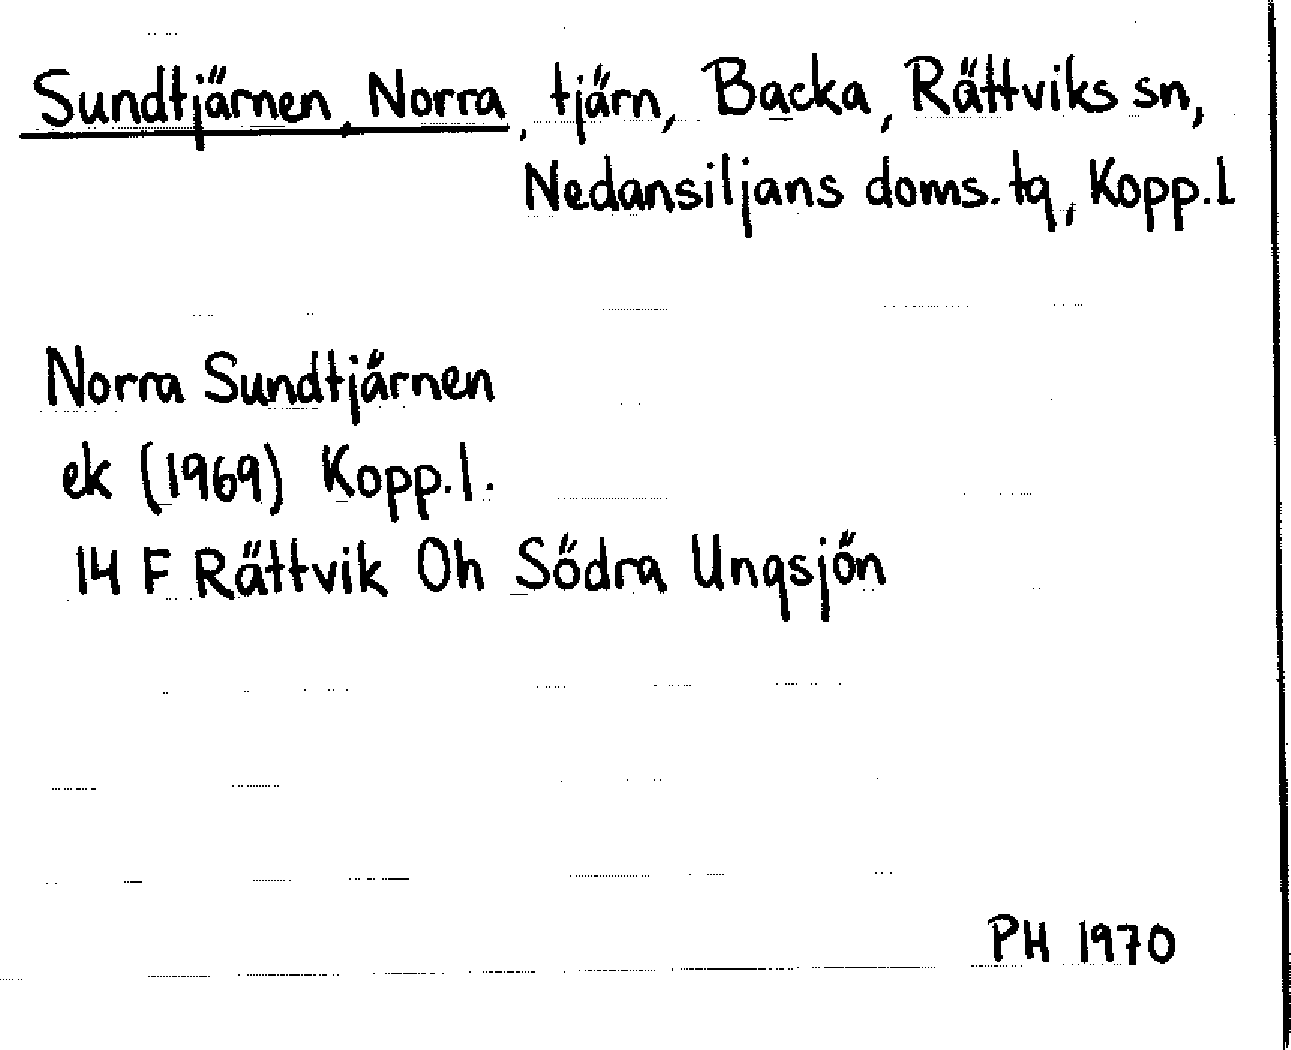 Sundtjärnen, Norra, tjärn, Backa, Rättviks sn,
Nedansiljans doms. tg, Kopp.l
Norra Sundtjärnen
ek (1969) Kopp.l.
14 F Rättvik Oh Södra Ungsjön
PH 1970